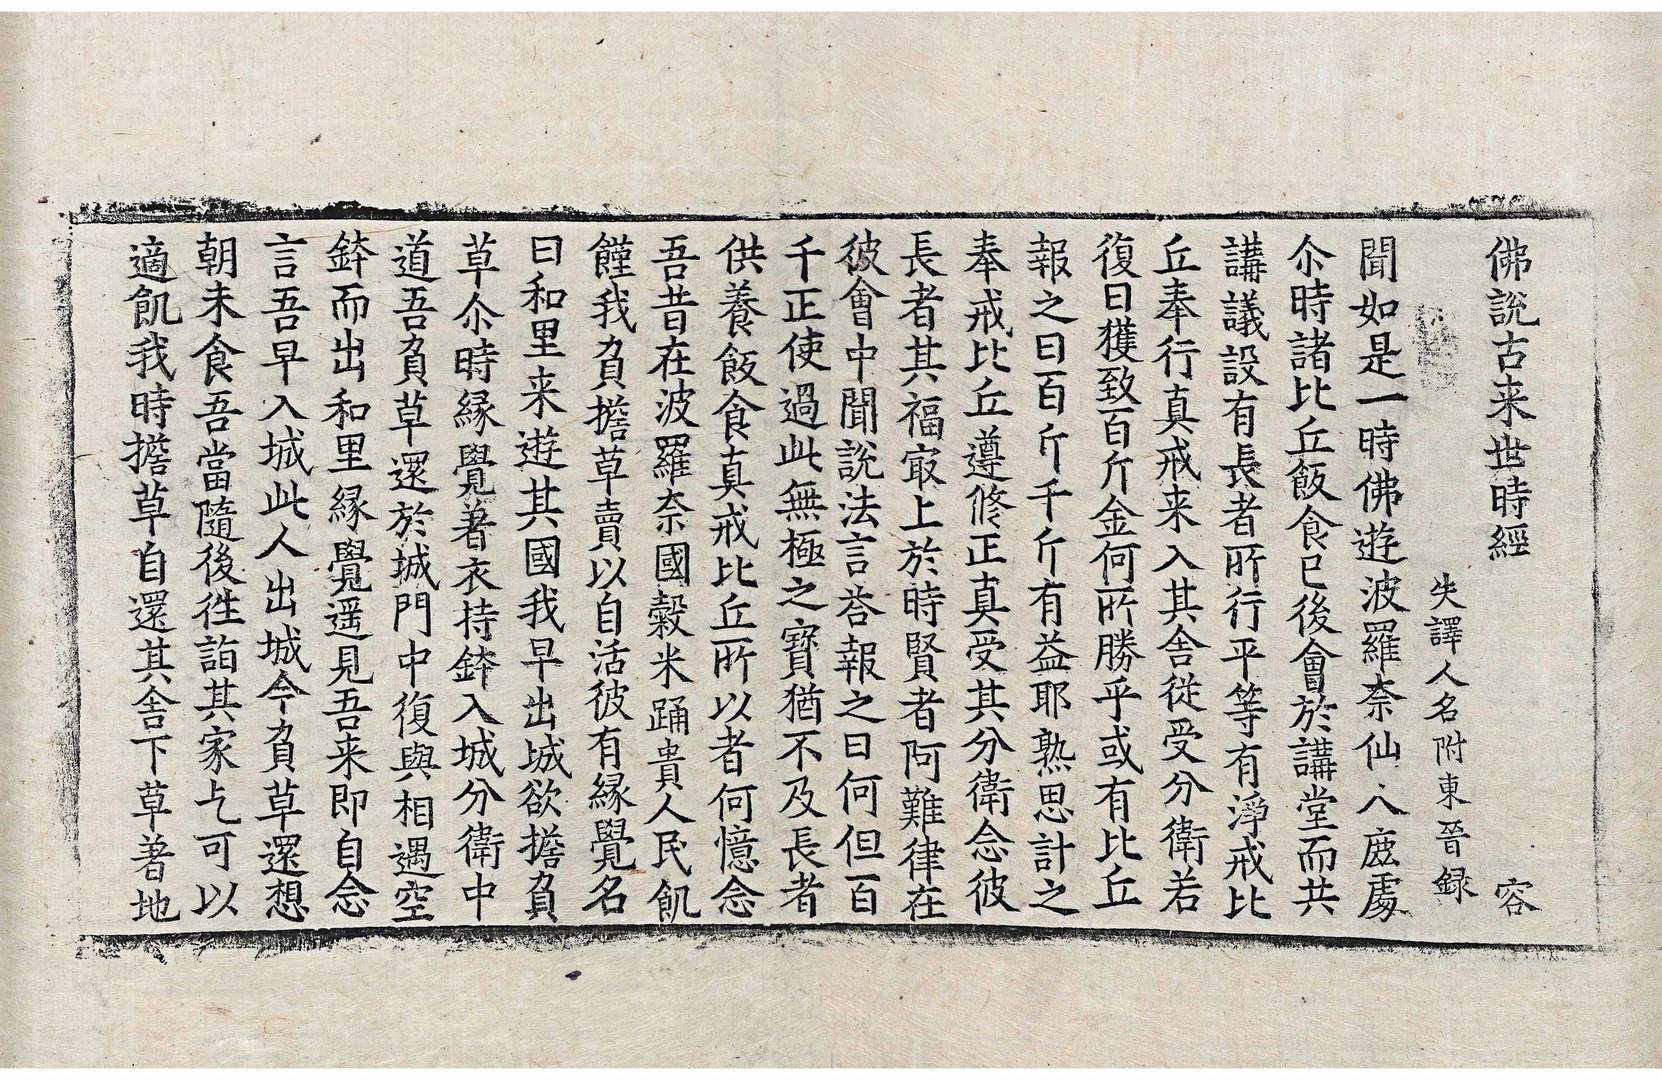 佛說古来世時經 容
失譯人名附東晉録
聞如是一時佛遊波羅奈仙人䕃處
尒時諸比丘飯食已後會於講堂而共
講議設有長者所行平等有淨戒比
丘奉行真戒来入其舍従受分衛若
復日獲致百斤金何所勝乎或有比丘
報之曰百斤千斤有益耶熟思計之
奉戒比丘遵修正真受其分衛念彼
長者其福㝡上於時賢者阿難律在
彼會中聞說法言荅報之曰何但百
千正使過此無極之寳猶不及長者
供養飯食真戒比丘所以者何憶念
吾昔在波羅奈國穀米踊貴人民飢
饉我負擔草賣以自活彼有縁覺名
曰和里来遊其國我早出城欲擔負
草尒時縁覺著衣持鉢入城分衛中
道吾負草還於城門中復與相遇空
鉢而出和里縁覺遥見吾来即自念
言吾早入城此人出城今負草還想
朝未食吾當隨後徃詣其家乞可以
適飢我時擔草自還其舍下草著地